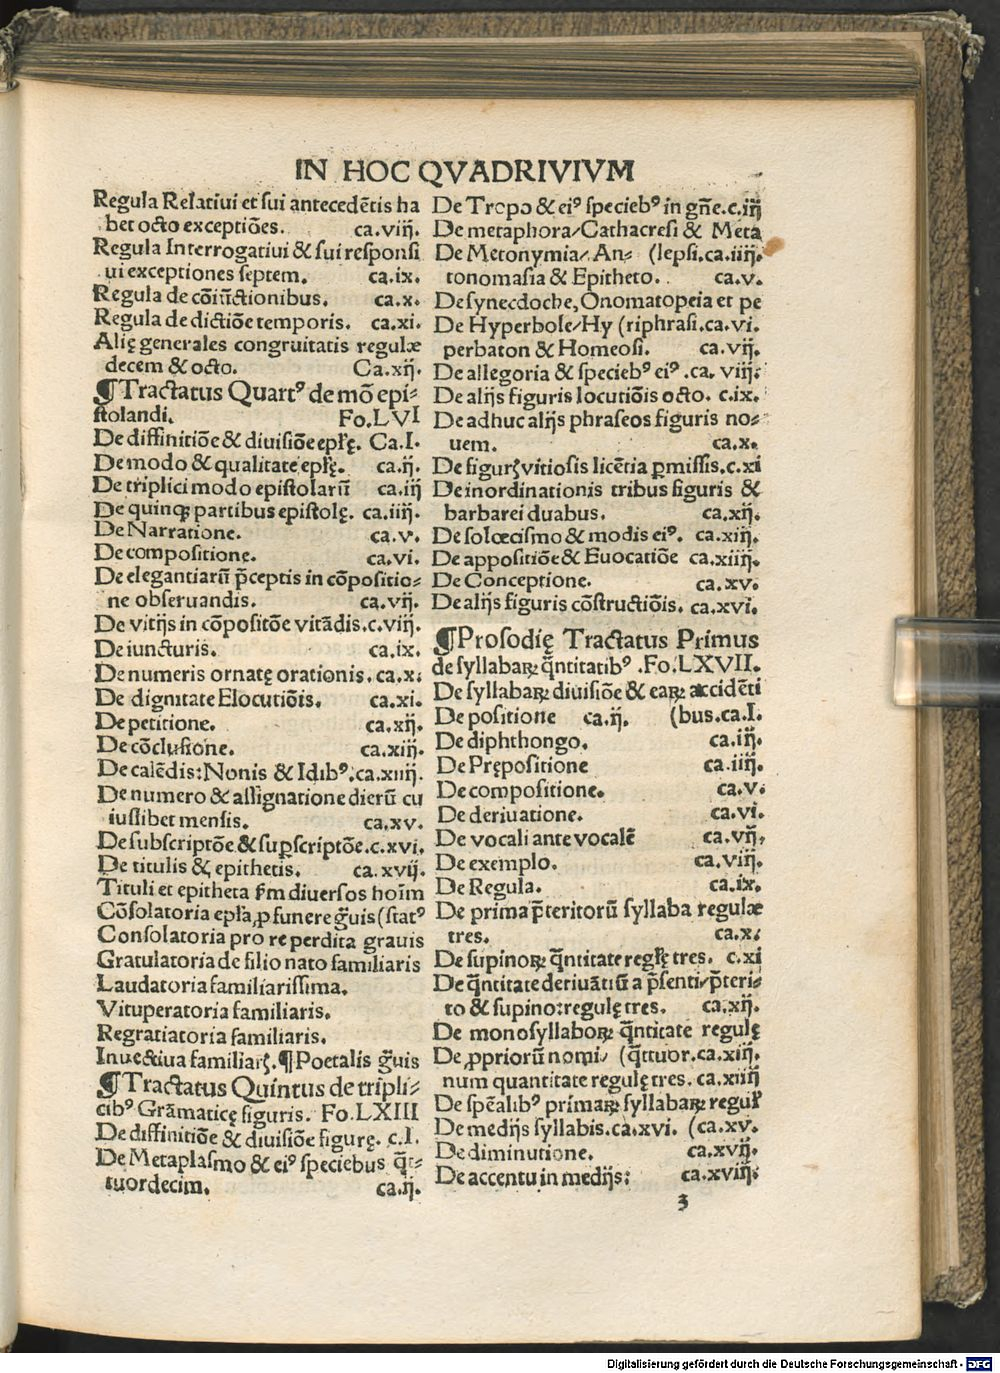 IN HOC QVADRIVIVM
Regula Relatiui et sui antecedẽtis ha
bet octo exceptiões. ca.viij.
Regula Interrogatiui & sui responsi
ui exceptiones septem. ca.ix.
Regula de cõiũctionibus. ca.x.
Regula de dictiõe temporis. ca.xi.
Alię generales congruitatis regulæ
decem & octo. Ca.xij.
¶Tractatus Quartꝰ de mõ epi-
stolandi. Fo.LVI
De diffinitiõe & diuisiõe epłę. Ca.I.
De modo & qualitate epłę. ca.ij.
De triplici modo epistolarũ ca.iij
De quinqꝫ partibus epistolę. ca.iiij.
De Narratione. ca.v.
De compositione. ca.vi.
De elegantiarũ p̃ceptis in cõpositio-
ne obseruandis. ca.vij.
De vitijs in cõpositõe vitãdis.c.viij.
De iuncturis. ca.ix.
De numeris ornatę orationis. ca.x.
De dignitate Elocutiõis. ca.xi.
De petitione. ca.xij.
De cõclusione. ca.xiij.
De calẽdis: Nonis & Idibꝰ.ca.xiiij.
De numero & assignatione dierũ cu
iuslibet mensis. ca.xv.
De subscriptõe & suꝑscriptõe.c.xvi.
De titulis & epithetis. ca.xvij.
Tituli et epitheta ẜm diuersos hoĩm
Cõsolatoria epła ꝓ funere g̃uis (statꝰ
Consolatoria pro re perdita grauis
Gratulatoria de filio nato familiaris
Laudatoria familiarissima.
Vituperatoria familiaris.
Regratiatoria familiaris.
Inuectiua familiarꝭ. ¶Poetalis g̃uis
¶Tractatus Quintus de tripli-
cibꝰ Grãmaticę figuris. Fo.LXIII
De diffinitiõe & diuisiõe figurę. c.I.
De Metaplasmo & eiꝰ speciebus q̃t-
tuordecim. ca.ij.
De Tropo & eiꝰ speciebꝰ in gñe.c.iij
De metaphora/Cathacresi & Meta
De Metonymia/ An- (lepsi.ca.iiij.
tonomasia & Epitheto. ca.v.
De synecdoche, Onomatopeia et pe
De Hyperbole/Hy (riphrasi.ca.vi.
perbaton & Homeosi. ca.vij.
De allegoria & speciebꝰ eiꝰ .ca. viij.
De alijs figuris locutiõis octo. c.ix.
De adhuc alijs phraseos figuris no-
uem. ca.x.
De figurꝭ vitiosis licẽtia ꝑmissis.c.xi
De inordinationis tribus figuris &
barbarei duabus. ca.xij.
De solœcismo & modis eiꝰ. ca.xiij.
De appositiõe & Euocatiõe ca.xiiij.
De Conceptione. ca.xv.
De alijs figuris cõstructiõis. ca.xvi.
¶Prosodię Tractatus Primus
de syllabaꝝ q̃ntitatibꝰ .Fo.LXVII.
De syllabaꝝ diuisiõe & eaꝝ accidẽti
De positione ca.ij. (bus.ca.I.
De diphthongo. ca.iij.
De Prępositione ca.iiij.
De compositione. ca.v.
De deriuatione. ca.vi.
De vocali ante vocalẽ ca.vij.
De exemplo. ca.viij.
De Regula. ca.ix.
De prima p̃teritorũ syllaba regulæ
tres. ca.x.
De supinoꝝ q̃ntitate regłę tres. c.xi
De q̃ntitate deriuãtiũ a p̃senti/p̃teri-
to & supino: regulę tres. ca.xij.
De monosyllaboꝝ q̃ntitate regulę
De ꝓpriorũ nomi/ (q̃ttuor.ca.xiij.
num quantitate regulę tres. ca.xiiij
De spẽalibꝰ primaꝝ syllabaꝝ reguł
De medijs syllabis.ca.xvi. (ca.xv.
De diminutione. ca.xvij.
De accentu in medijs: ca.xviij.
3
Digitalisierung gefördert durch die Deutsche Forschungsgemeinschaft - DFG